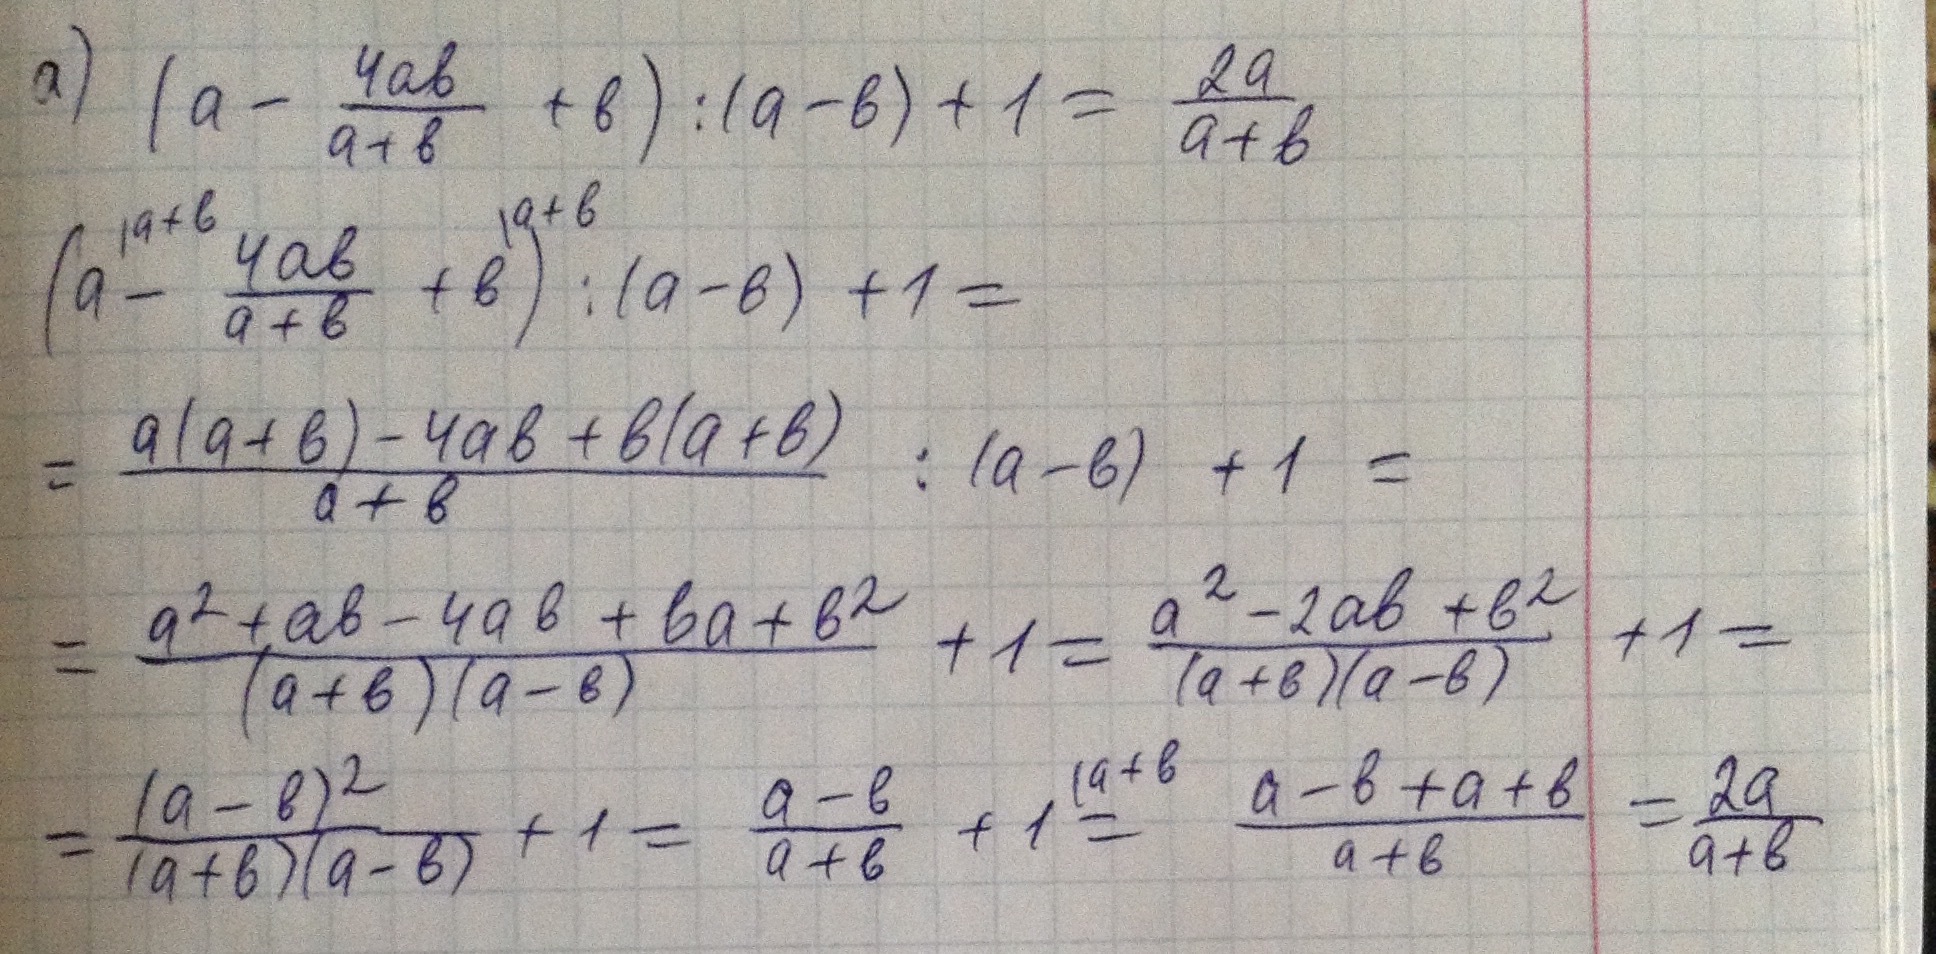 а) (a - 4ab/(a+b) + b) : (a-b) + 1 = 2a/(a+b)
(a |a+b - 4ab/(a+b) + b |a+b) : (a-b) + 1 =
= (a(a+b) - 4ab + b(a+b))/(a+b) : (a-b) + 1 =
= (a² + ab - 4ab + ba + b²)/((a+b)(a-b)) + 1 = (a² - 2ab + b²)/((a+b)(a-b)) + 1 =
= (a-b)²/((a+b)(a-b)) + 1 = (a-b)/(a+b) + 1 |a+b = (a-b+a+b)/(a+b) = 2a/(a+b)